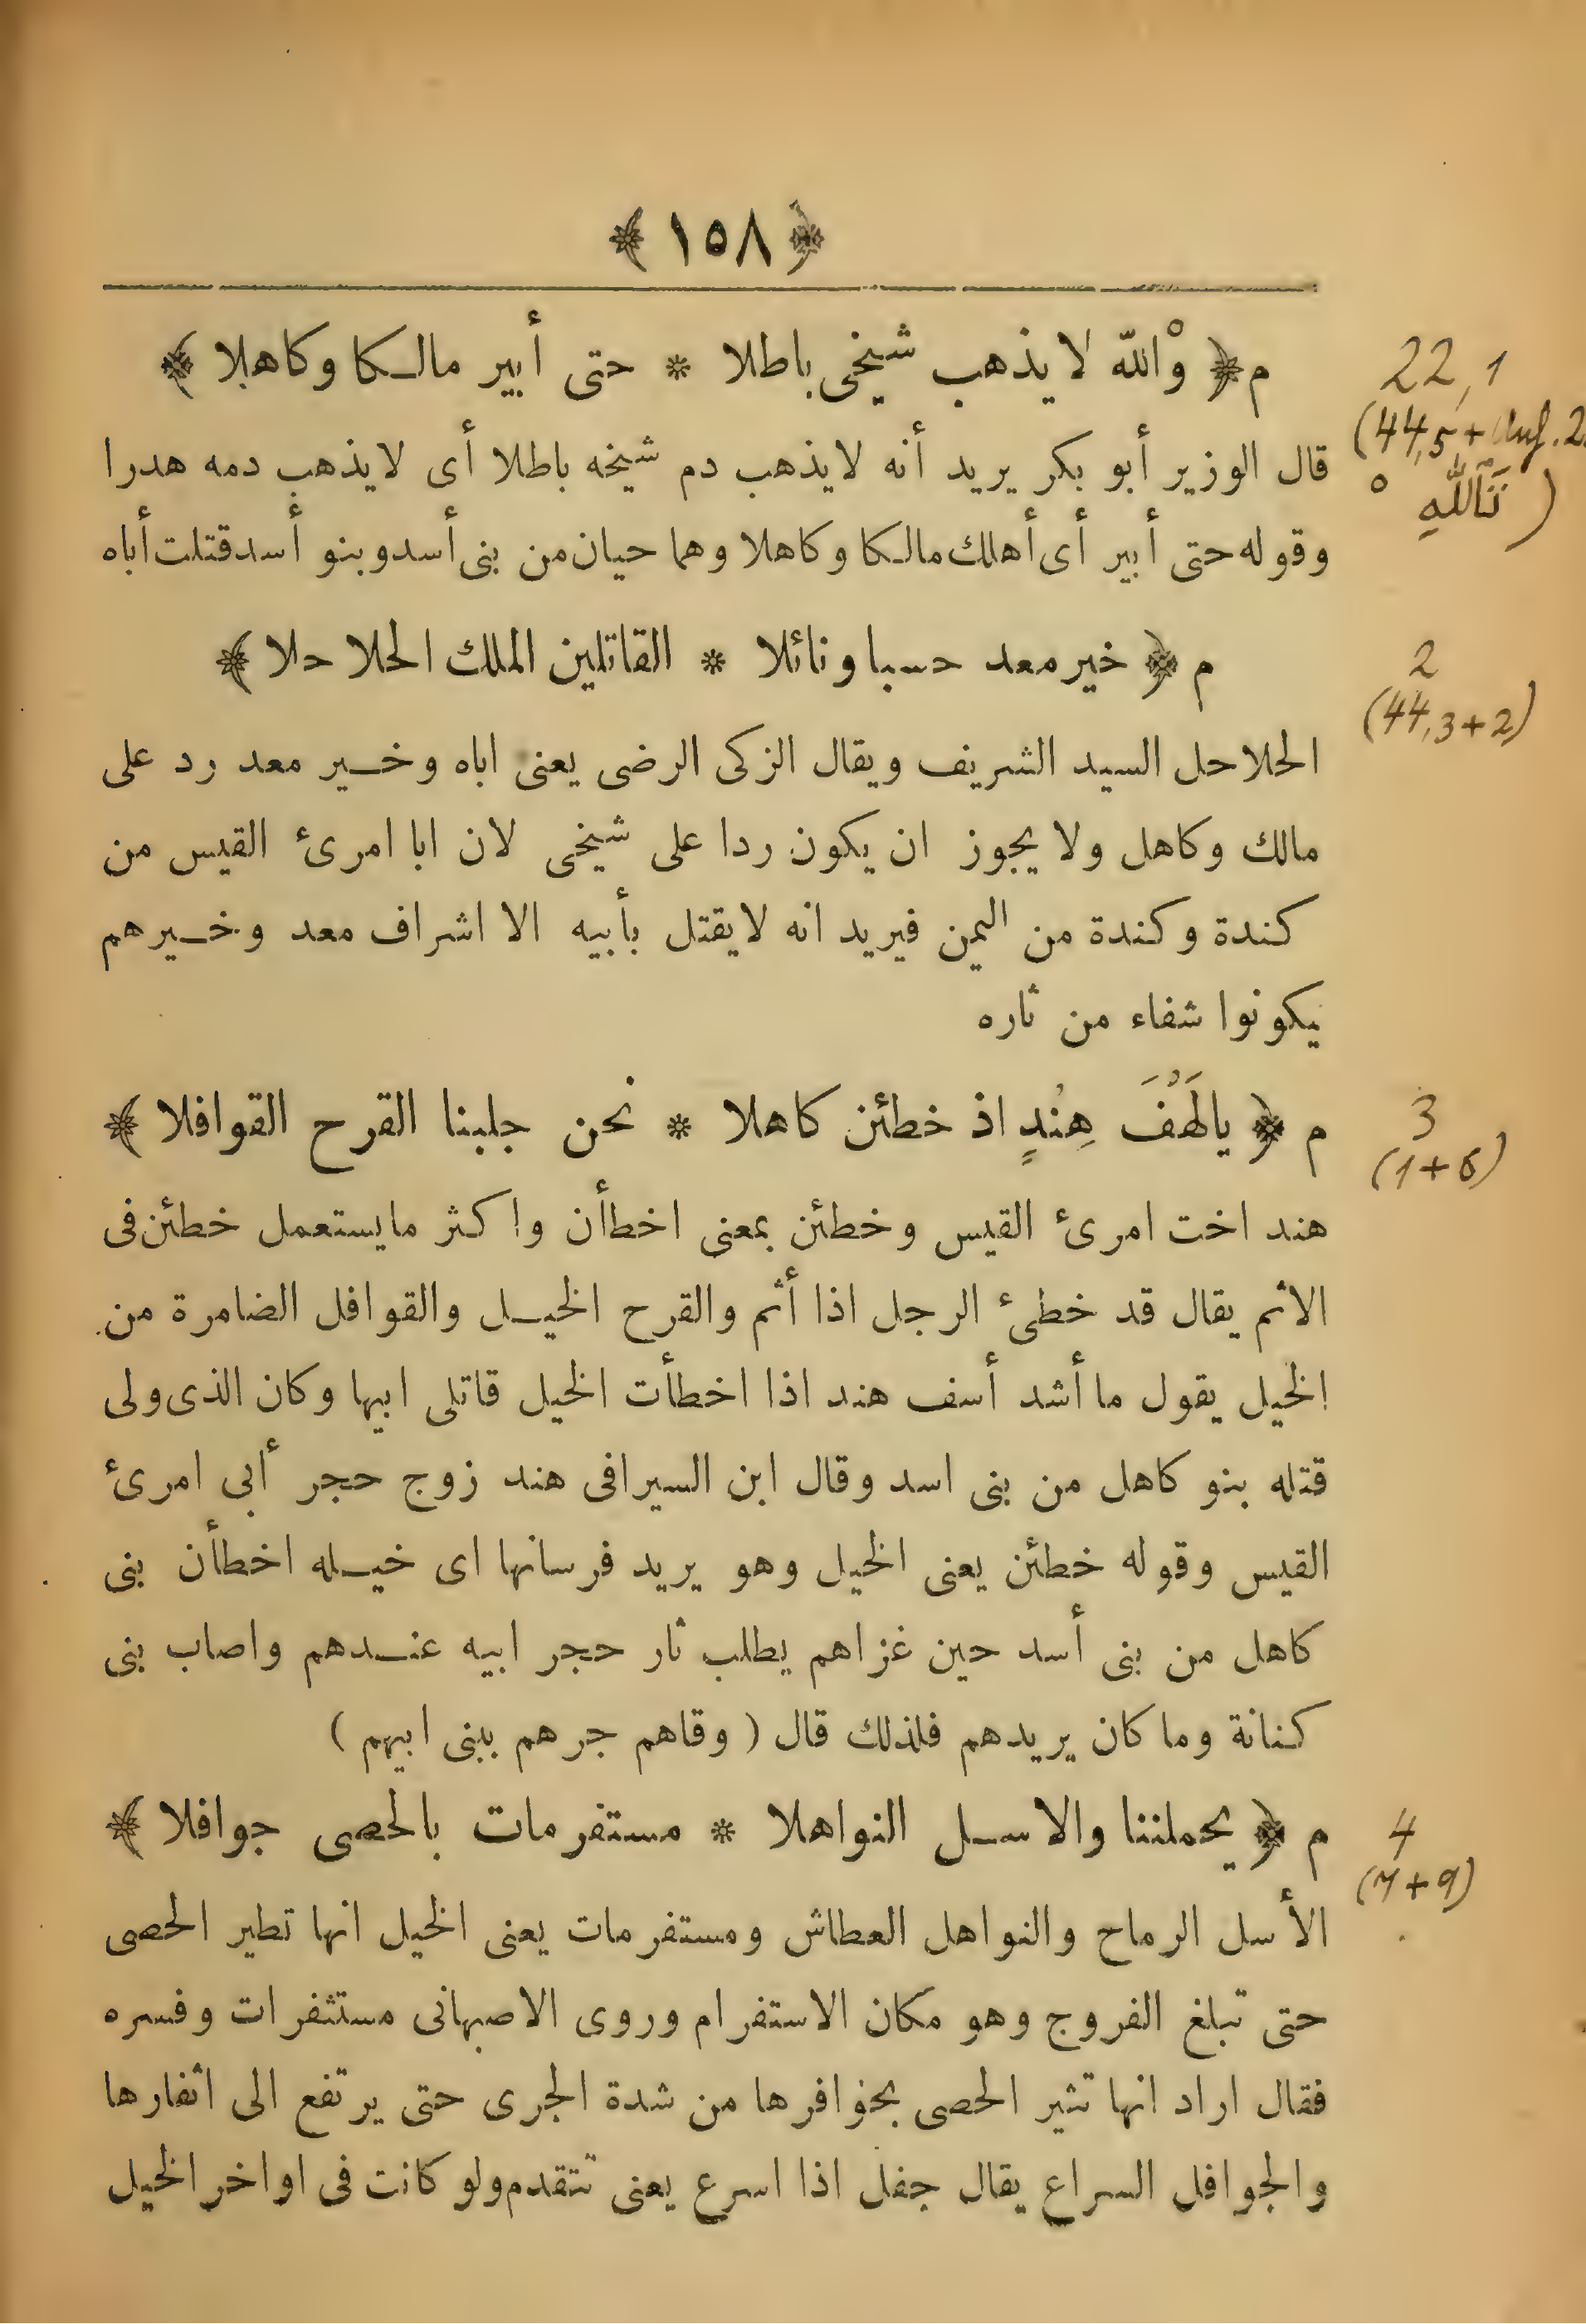 ﴿ ١٥٨ ﴾
م ﴿ والله لا يذهب شيخى باطلا * حتى أبير مالكا وكاهلا ﴾
22,1
(44,5 + Auf. 2
قال الوزير أبو بكر يريد أنه لايذهب دم شيخه باطلا أى لايذهب دمه هدرا
تَٱللهِ )
وقوله حتى أبير أى أهلك مالكا وكاهلا وهما حيان من بنى أسد وبنو أسد قتلت أباه
م ﴿ خير معد حسبا ونائلا * القاتلين الملك الحلاحلا ﴾
2
(44,3+2)
الحلاحل السيد الشريف ويقال الزكى الرضى يعنى اباه وخير معد رد على
مالك وكاهل ولا يجوز ان يكون ردا على شيخى لان ابا امرئ القيس من
كندة وكندة من اليمن فيريد انه لايقتل بأبيه الا اشراف معد وخيرهم
يكونوا شفاء من ثاره
م ﴿ يالَهْفَ هِنْدٍ اذ خطئن كاهلا * نحن جلبنا القرح القوافلا ﴾
3
(1+6)
هند اخت امرئ القيس وخطئن بمعنى اخطأن واكثر مايستعمل خطئن فى
الاثم يقال قد خطئ الرجل اذا أثم والقرح الخيل والقوافل الضامرة من
الخيل يقول ما أشد أسف هند اذا اخطأت الخيل قاتلى ابيها وكان الذى ولى
قتله بنو كاهل من بنى اسد وقال ابن السيرافى هند زوج حجر أبى امرئ
القيس وقوله خطئن يعنى الخيل وهو يريد فرسانها اى خيله اخطأن بنى
كاهل من بنى أسد حين غزاهم يطلب ثار حجر ابيه عندهم واصاب بنى
كنانة وما كان يريدهم فلذلك قال ( وقاهم جرهم ببنى ابيهم )
م ﴿ يحملننا والاسل النواهلا * مستفرمات بالحصى جوافلا ﴾
4
(7+9)
الأسل الرماح والنواهل العطاش ومستفرمات يعنى الخيل انها تطير الحصى
حتى تبلغ الفروج وهو مكان الاستفرام وروى الاصبهانى مستثفرات وفسره
فقال اراد انها تثير الحصى بحوافرها من شدة الجرى حتى يرتفع الى اثفارها
والجوافل السراع يقال جفل اذا اسرع يعنى تتقدم ولو كانت فى اواخر الخيل